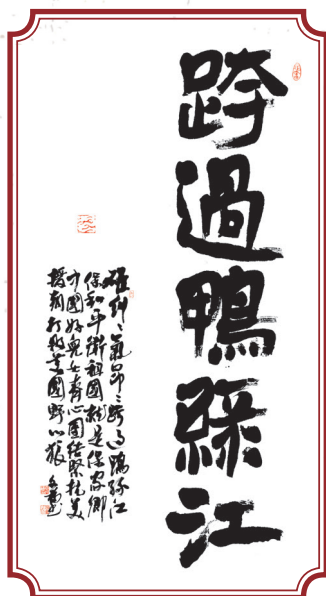 跨過鴨綠江
雄糾〻氣昂〻跨过鴨綠江
保和平衛祖國就是保家鄉
中國好兒女齊心團結緊抗美
援朝打敗美國野心狼